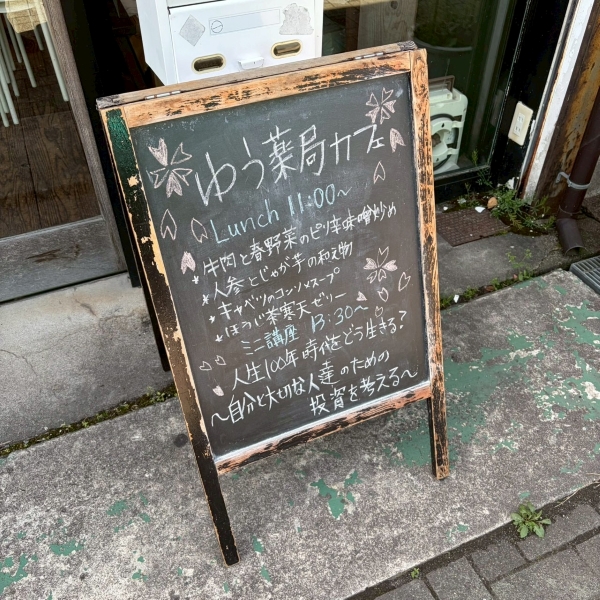 ゆう薬局カフェ
Lunch 11:00～
牛肉と春野菜のピリ辛味噌炒め
*人参とじゃが芋の和え物
*キャベツのコンソメスープ
*ほうじ茶寒天ゼリー
ミニ講座 13:30～
人生100年時代をどう生きる?
～自分と大切な人達のための
投資を考える～